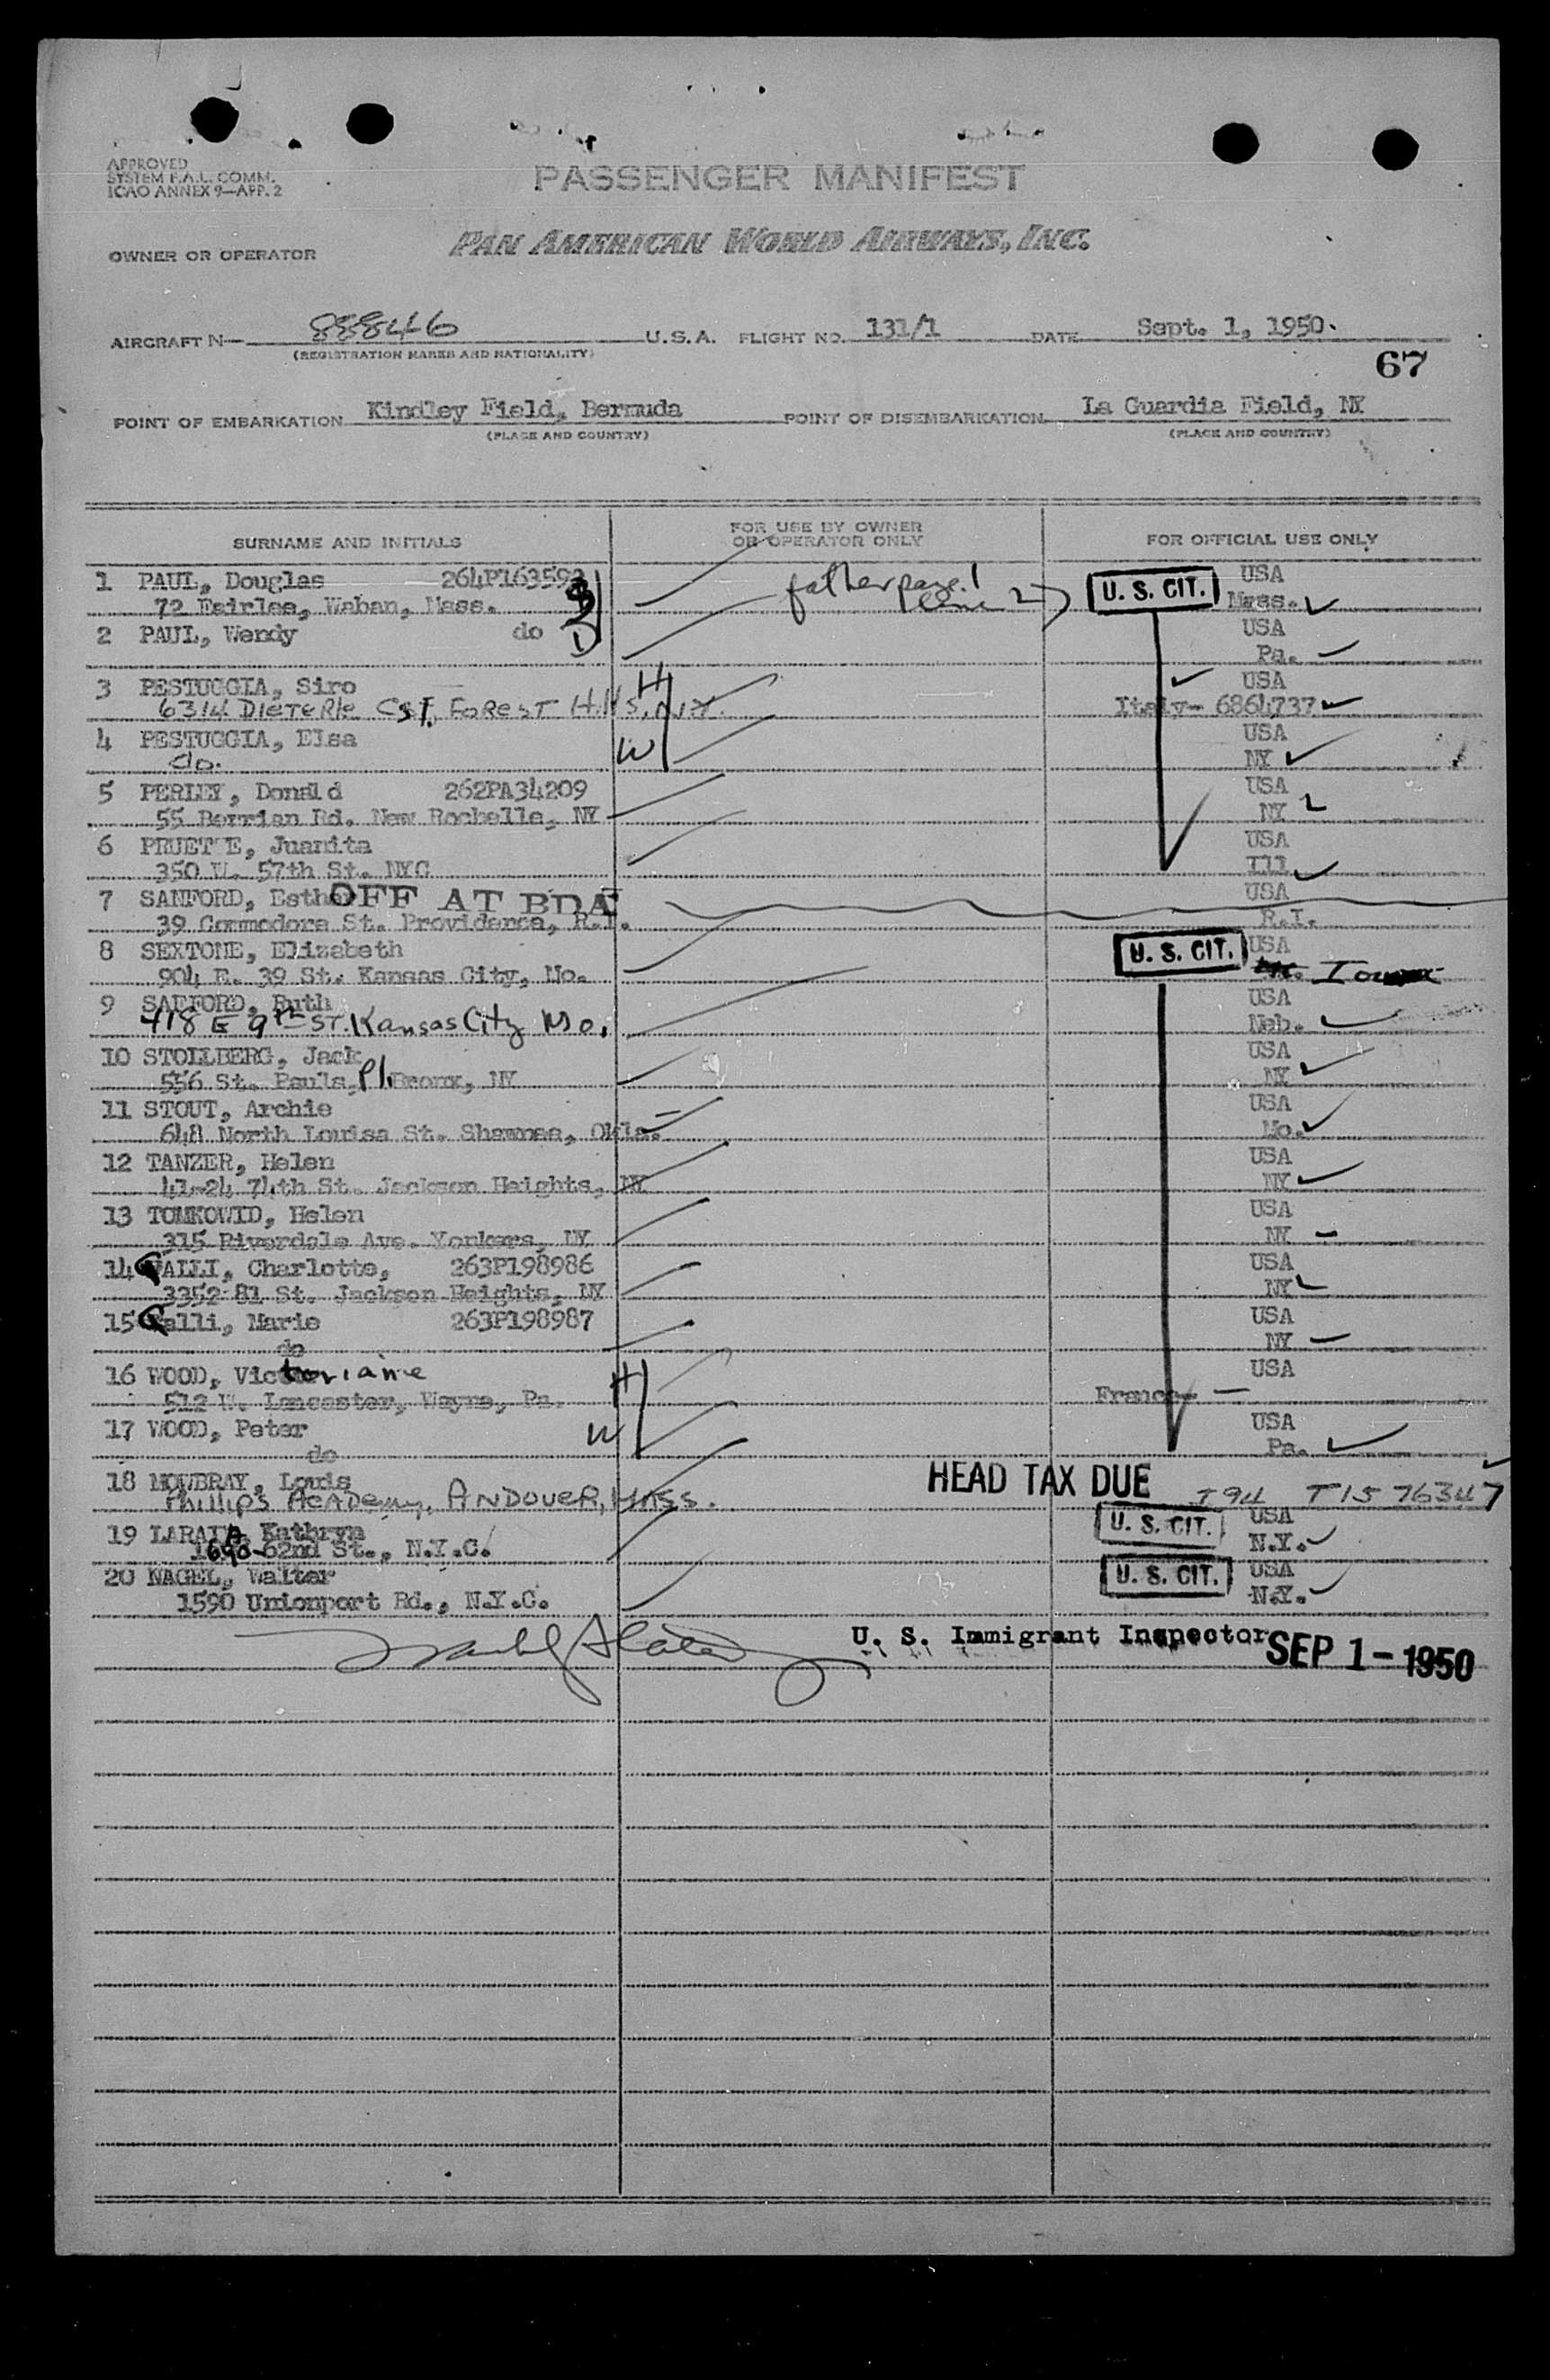 APPROVED
SYSTEM F.A.L. COMM.
ICAO ANNEX 9—APP. 2
PASSENGER MANIFEST
OWNER OR OPERATOR PAN AMERICAN WORLD AIRWAYS, INC.
AIRCRAFT N— 88846 U.S.A. FLIGHT NO. 131/1 DATE Sept. 1, 1950.
(REGISTRATION MARKS AND NATIONALITY)
67
POINT OF EMBARKATION Kindley Field, Bermuda POINT OF DISEMBARKATION La Guardia Field, NY
(PLACE AND COUNTRY) (PLACE AND COUNTRY)
SURNAME AND INITIALS FOR USE BY OWNER OR OPERATOR ONLY FOR OFFICIAL USE ONLY
1 PAUL, Douglas 264P163593 father page 1 U. S. CIT. USA
72 Fairlee, Waban, Mass. line 2 Mass.
2 PAUL, Wendy do D USA
Pa.
3 PESTUGGIA, Siro H USA
6314 DIETERLE CST, FOREST H.lls, N.Y. Italy- 6864737
4 PESTUGGIA, Elsa W USA
do. NY
5 PERLEY, Donald 262PA34209 USA
55 Berrian Rd. New Rochelle, NY NY
6 PRUETTE, Juanita USA
350 W. 57th St. NYC Ill
7 SANFORD, Esther OFF AT BDA USA
39 Commodore St. Providence, R.I. R.I.
8 SEXTONE, Elizabeth U. S. CIT. USA
904 E. 39 St. Kansas City, Mo. Iowa
9 SAFFORD, Ruth USA
418 E 9th ST. Kansas City Mo. Neb.
10 STOLLBERG, Jack USA
556 St. Pauls, Pl. Bronx, NY NY
11 STOUT, Archie USA
648 North Louisa St. Shawnee, Okla. Mo.
12 TANZER, Helen USA
41-24 74th St. Jackson Heights, NY NY
13 TOMKOWID, Helen USA
315 Riverdale Ave. Yonkers, NY NY
14 GALLI, Charlotte, 263P198986 USA
3352 81 St. Jackson Heights, NY NY
15 Galli, Marie 263P198987 USA
do NY
16 WOOD, Victoriane H USA
512 W. Lancaster, Wayne, Pa. France-
17 WOOD, Peter W USA
do Pa.
18 MOWBRAY, Louis HEAD TAX DUE
Phillips ACADemy, ANDOVER, MASS. I94 T1576347
19 LARATTA, Kathryn U. S. CIT. USA
62nd St., N.Y.C. N.Y.
20 NAGEL, Walter U. S. CIT. USA
1590 Unionport Rd., N.Y.C. N.Y.
U. S. Immigrant Inspector SEP 1 - 1950